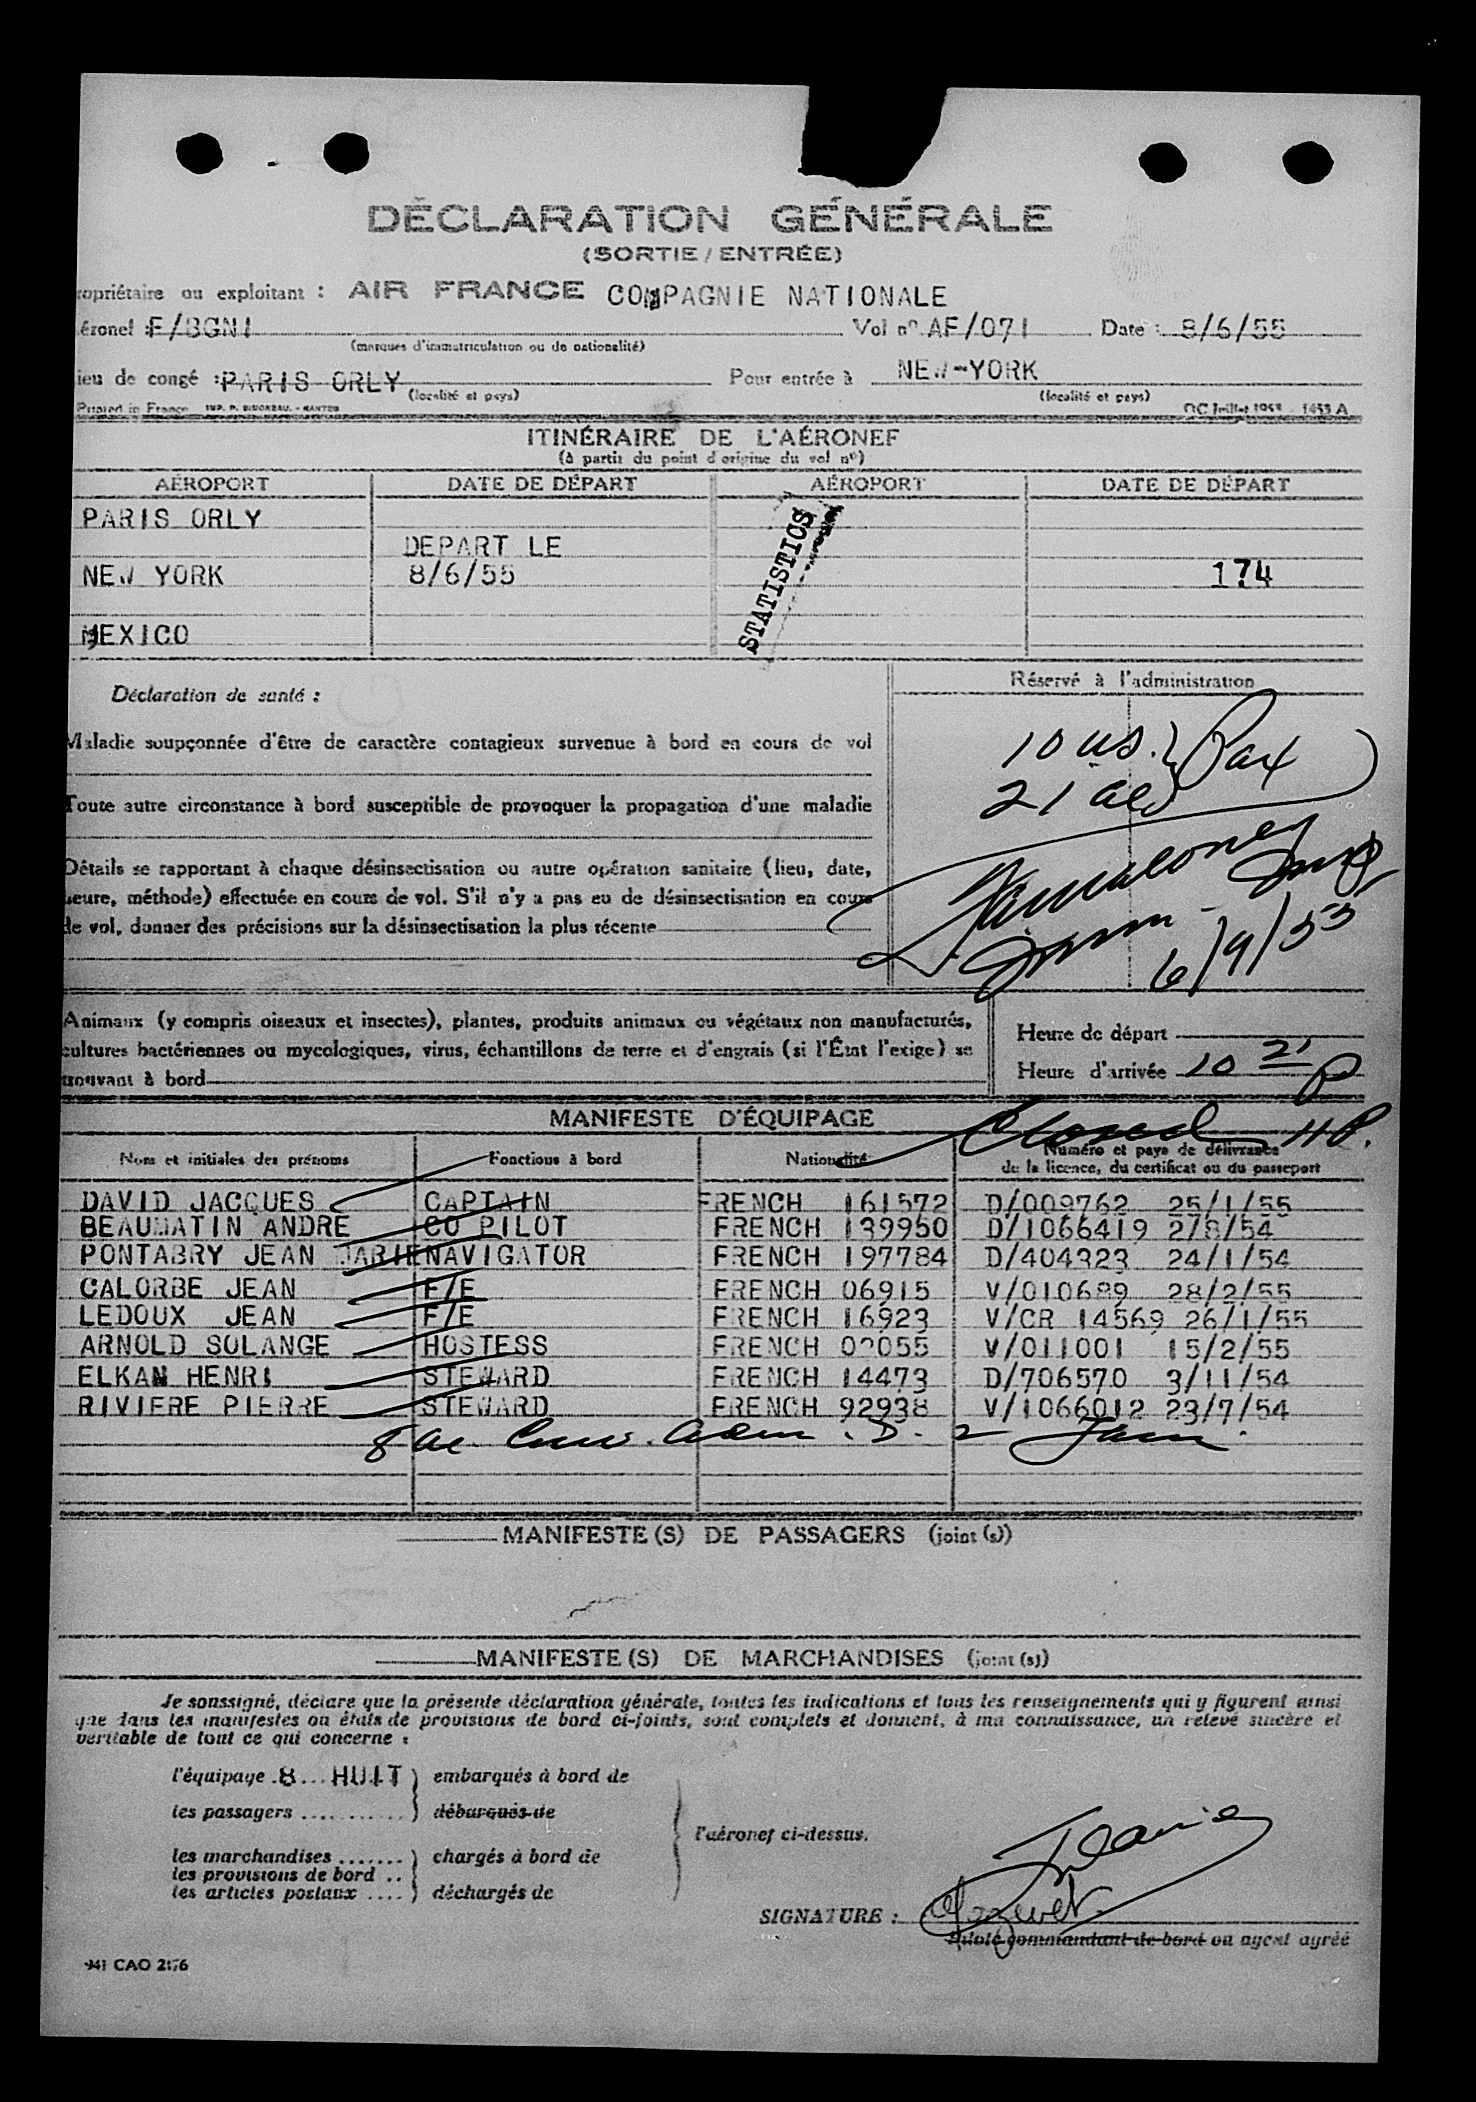 DÉCLARATION GÉNÉRALE
(SORTIE / ENTRÉE)
ropriétaire ou exploitant : AIR FRANCE COMPAGNIE NATIONALE
éronef : F/BGNI Vol nº AF/071 Date : 8/6/55
(marques d'immatriculation ou de nationalité)
ieu de congé : PARIS ORLY Pour entrée à NEW-YORK
(localité et pays) (localité et pays)
Printed in France
ITINÉRAIRE DE L'AÉRONEF
(à partir du point d'origine du vol nº)
AÉROPORT DATE DE DÉPART AÉROPORT DATE DE DÉPART
PARIS ORLY
DEPART LE
NEW YORK 8/6/55 174
STATISTICS
MEXICO
Déclaration de santé : Réservé à l'administration
Maladie soupçonnée d'être de caractère contagieux survenue à bord en cours de vol
10 us. Pax
21 al
Toute autre circonstance à bord susceptible de provoquer la propagation d'une maladie
Détails se rapportant à chaque désinsectisation ou autre opération sanitaire (lieu, date,
heure, méthode) effectuée en cours de vol. S'il n'y a pas eu de désinsectisation en cours
de vol, donner des précisions sur la désinsectisation la plus récente
6/9/55
Animaux (y compris oiseaux et insectes), plantes, produits animaux ou végétaux non manufacturés,
cultures bactériennes ou mycologiques, virus, échantillons de terre et d'engrais (si l'État l'exige) se
trouvant à bord
Heure de départ
Heure d'arrivée 10 21 P
MANIFESTE D'ÉQUIPAGE Closed 11P.
Nom et initiales des prénoms Fonctions à bord Nationalité Numéro et pays de délivrance
de la licence, du certificat ou du passeport
DAVID JACQUES CAPTAIN FRENCH 161572 D/009762 25/1/55
BEAUMATIN ANDRE CO PILOT FRENCH 139950 D/1066419 2/8/54
PONTABRY JEAN MARIE NAVIGATOR FRENCH 197784 D/404323 24/1/54
CALORBE JEAN F/E FRENCH 06915 V/010689 28/2/55
LEDOUX JEAN F/E FRENCH 16923 V/CR 14569 26/1/55
ARNOLD SOLANGE HOSTESS FRENCH 02055 V/011001 15/2/55
ELKAN HENRI STEWARD FRENCH 14473 D/706570 3/11/54
RIVIERE PIERRE STEWARD FRENCH 92938 V/1066012 23/7/54
MANIFESTE (S) DE PASSAGERS (joint (s))
MANIFESTE (S) DE MARCHANDISES (joint (s))
Je soussigné, déclare que la présente déclaration générale, toutes les indications et tous les renseignements qui y figurent ainsi
que dans les manifestes ou états de provisions de bord ci-joints, sont complets et donnent, à ma connaissance, un relevé sincère et
véritable de tout ce qui concerne :
l'équipage .8... HUIT ) embarqués à bord de
les passagers ........... ) débarqués de
l'aéronef ci-dessus.
les marchandises ....... ) chargés à bord de
les provisions de bord ..
les articles postaux .... ) déchargés de
SIGNATURE :
Pilote commandant de bord ou agent agréé